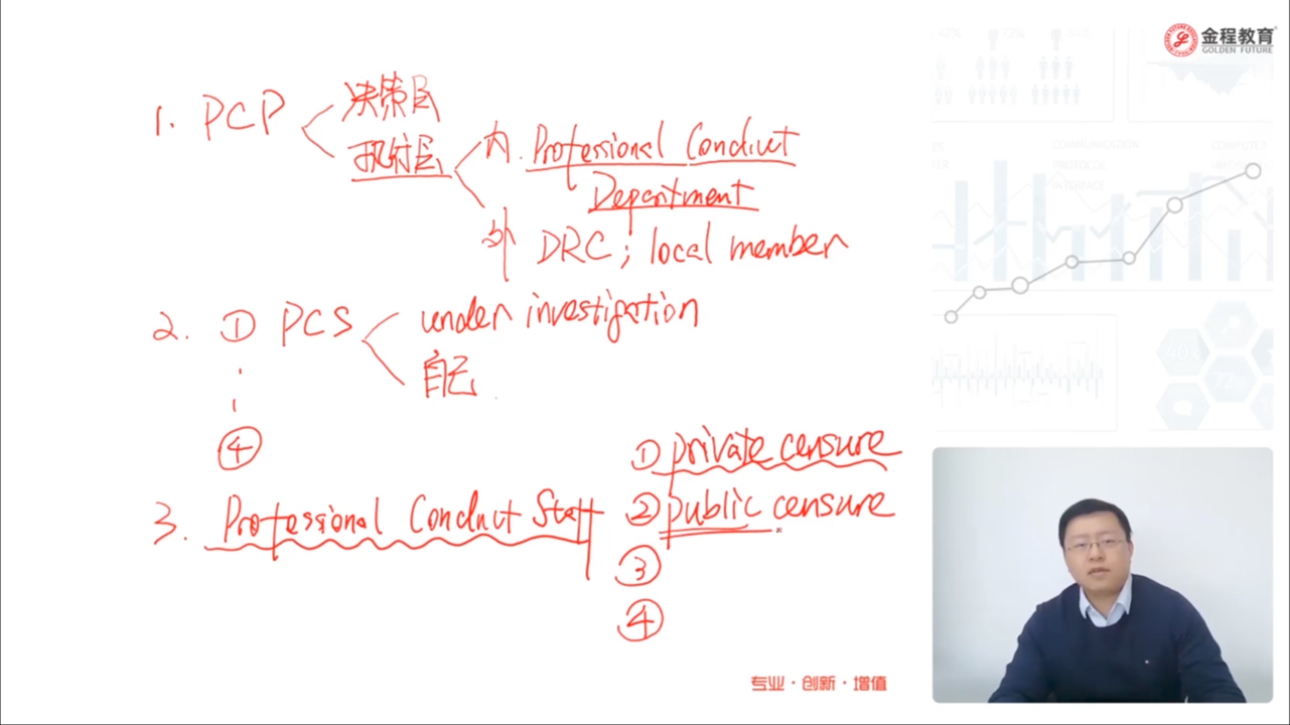 金程教育
GOLDEN FUTURE
1. PCP
决策层
执行层
内. Professional Conduct
Department
外 DRC; local member
2. ① PCS
under investigation
自己
④
① private censure
3. Professional Conduct Staff
② public censure
③
④
COMMUNICATION
PROTOCOL
INTERFACE
40%
72%
专业·创新·增值